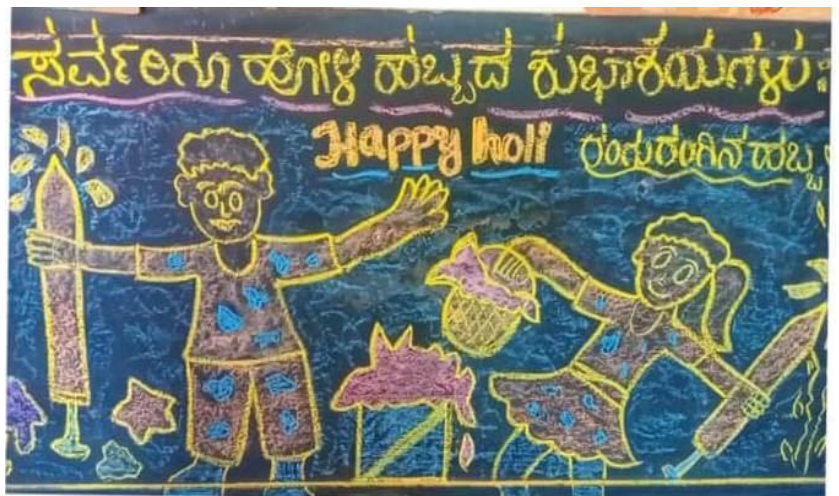 ಸರ್ವರಿಗೂ ಹೋಳಿ ಹಬ್ಬದ ಶುಭಾಶಯಗಳು
Happy holi ರಂಗುರಂಗಿನ ಹಬ್ಬ